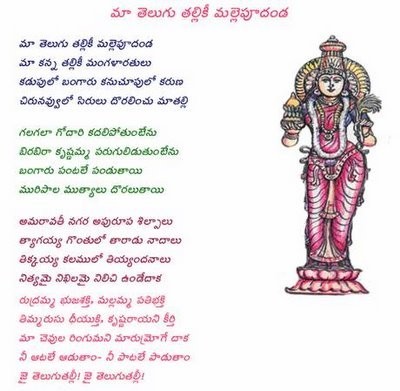 మా తెలుగు తల్లికీ మల్లెపూదండ
మా తెలుగు తల్లికీ మల్లెపూదండ
మా కన్న తల్లికీ మంగళారతులు
కడుపులో బంగారు కనుచూపులో కరుణ
చిరునవ్వులో సిరులు దొరలించు మాతల్లి
గలగలా గోదారి కదలిపోతుంటేను
బిరబిరా కృష్ణమ్మ పరుగులిడుతుంటేను
బంగారు పంటలే పండుతాయి
మురిపాల ముత్యాలు దొరలుతాయి
అమరావతీ నగర అపురూప శిల్పాలు
త్యాగయ్య గొంతులో తారాడు నాదాలు
తిక్కయ్య కలములో తియ్యందనాలు
నిత్యమై నిఖిలమై నిలిచి ఉండేదాక
రుద్రమ్మ భుజశక్తి, మల్లమ్మ పతిభక్తి
తిమ్మరుసు ధీయుక్తి, కృష్ణరాయని కీర్తి
మా చెవుల రింగుమని మారుమ్రోగే దాక
నీ ఆటలే ఆడుతాం- నీ పాటలే పాడుతాం
జై తెలుగుతల్లీ! జై తెలుగుతల్లీ!